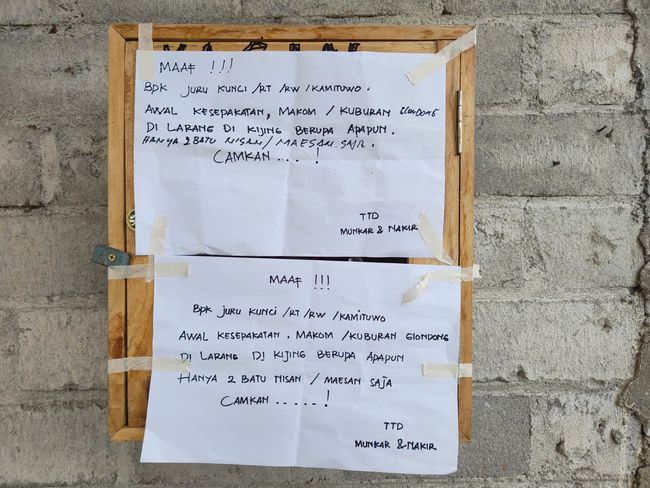 MAAF !!!
BPK JURU KUNCI /RT /RW /KAMITUWO.
AWAL KESEPAKATAN, MAKOM / KUBURAN GLONDONG
DI LARANG DI KIJING BERUPA APAPUN.
HANYA 2 BATU NISAN / MAESAN SAJA.
CAMKAN .... !
TTD
MUNKAR & NAKIR
MAAF !!!
BPK JURU KUNCI /RT /RW /KAMITUWO
AWAL KESEPAKATAN. MAKOM /KUBURAN GLONDONG
DI LARANG DI KIJING BERUPA APAPUN
HANYA 2 BATU NISAN / MAESAN SAJA
CAMKAN .....!
TTD
MUNKAR & NAKIR